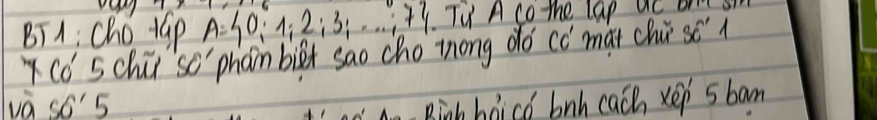 BT1: Cho tập A={0; 1; 2; 3; ...; 7}. Từ A có thể lập đc bn
có 5 chữ số phân biệt sao cho trong đó có mặt chữ số 1
và số 5
Bình hỏi có bnh cách xếp 5 bạn